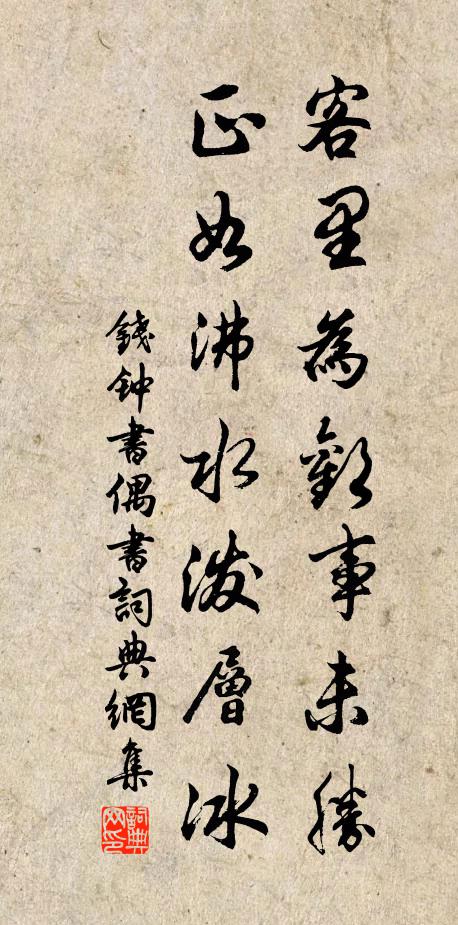 客里為歡事未勝
正如沸水潑層冰
錢钟書偶書詞典網集
詞典網印